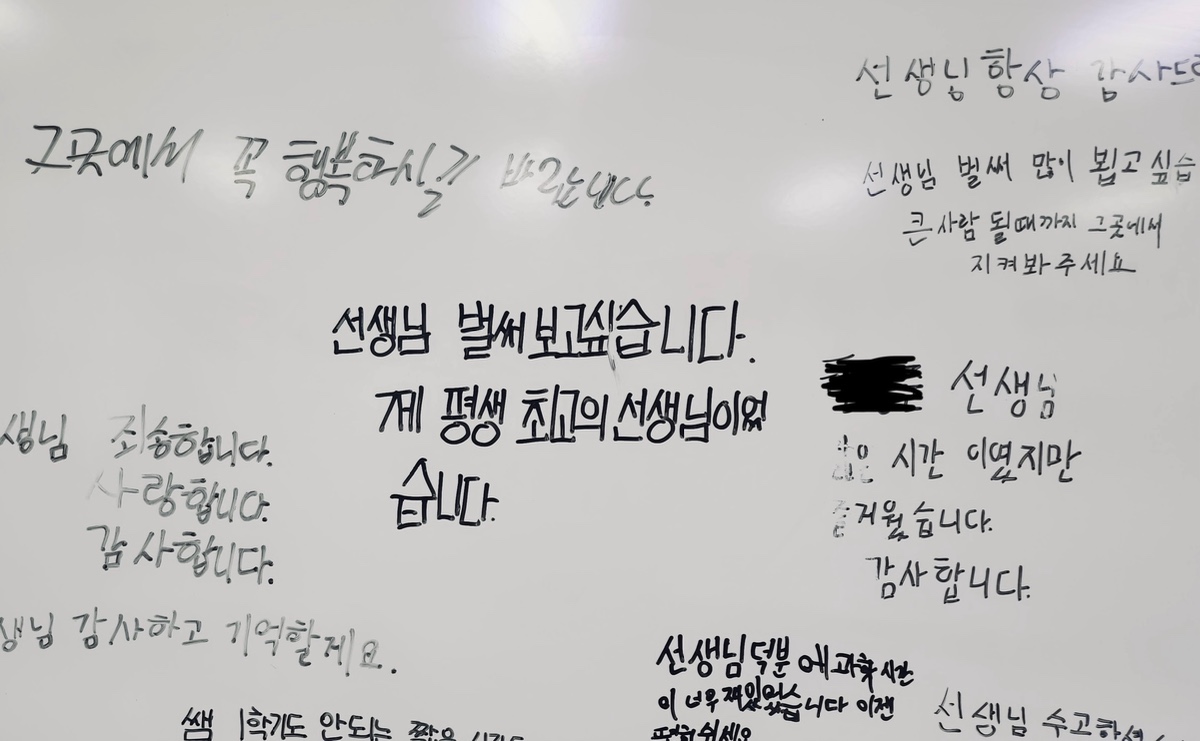 선생님 항상 감사드
그곳에서 꼭 행복하시길 바랍니다.
선생님 벌써 많이 뵙고 싶습
큰 사람 될때까지 그곳에서
지켜봐 주세요
선생님 벌써 보고싶습니다.
제 평생 최고의 선생님이었
습니다.
선생님
짧은 시간 이였지만
즐거웠습니다.
감사합니다.
생님 죄송합니다.
사랑합니다.
감사합니다.
생님 감사하고 기억할게요.
선생님 덕분에 과학 시간
이 너무 재밌었습니다 이젠
편히 쉬세요
쌤 1학기도 안되는 짧은
선생님 수고하셨